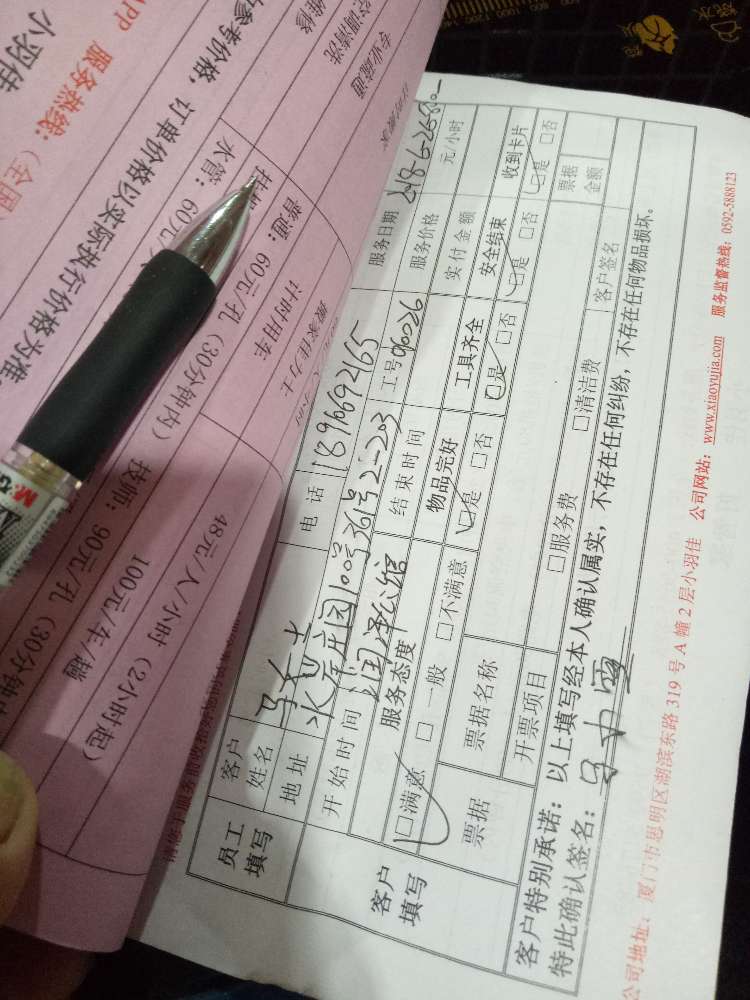 小羽佳
APP 服务热线：（全国
参考价格，订单价格以实际执行价格为准
空调清洗
专业疏通
水管：60元/
普通：60元/孔（30分钟内） 技师：90元/孔（30分钟
计时用车 100元/车/趟
搬家佳力士 48元/人/小时（2小时起）
员工填写
客户姓名
电话 18910692165
服务日期
地址
服务价格 元/小时
开始时间
结束时间
工号 06026
实付金额
客户填写
服务态度
物品完好
工具齐全
安全结束
收到卡片
□满意 □一般 □不满意
□是 □否
□是 □否
□是 □否
□是 □否
票据
票据名称
票据金额
开票项目
□服务费
□清洁费
客户签名
客户特别承诺：以上填写经本人确认属实，不存在任何纠纷，不存在任何物品损坏。
特此确认签名：
公司地址：厦门市思明区湖滨东路 319 号 A 幢 2 层小羽佳 公司网站：www.xiaoyujia.com 服务监督热线：0592-5888123